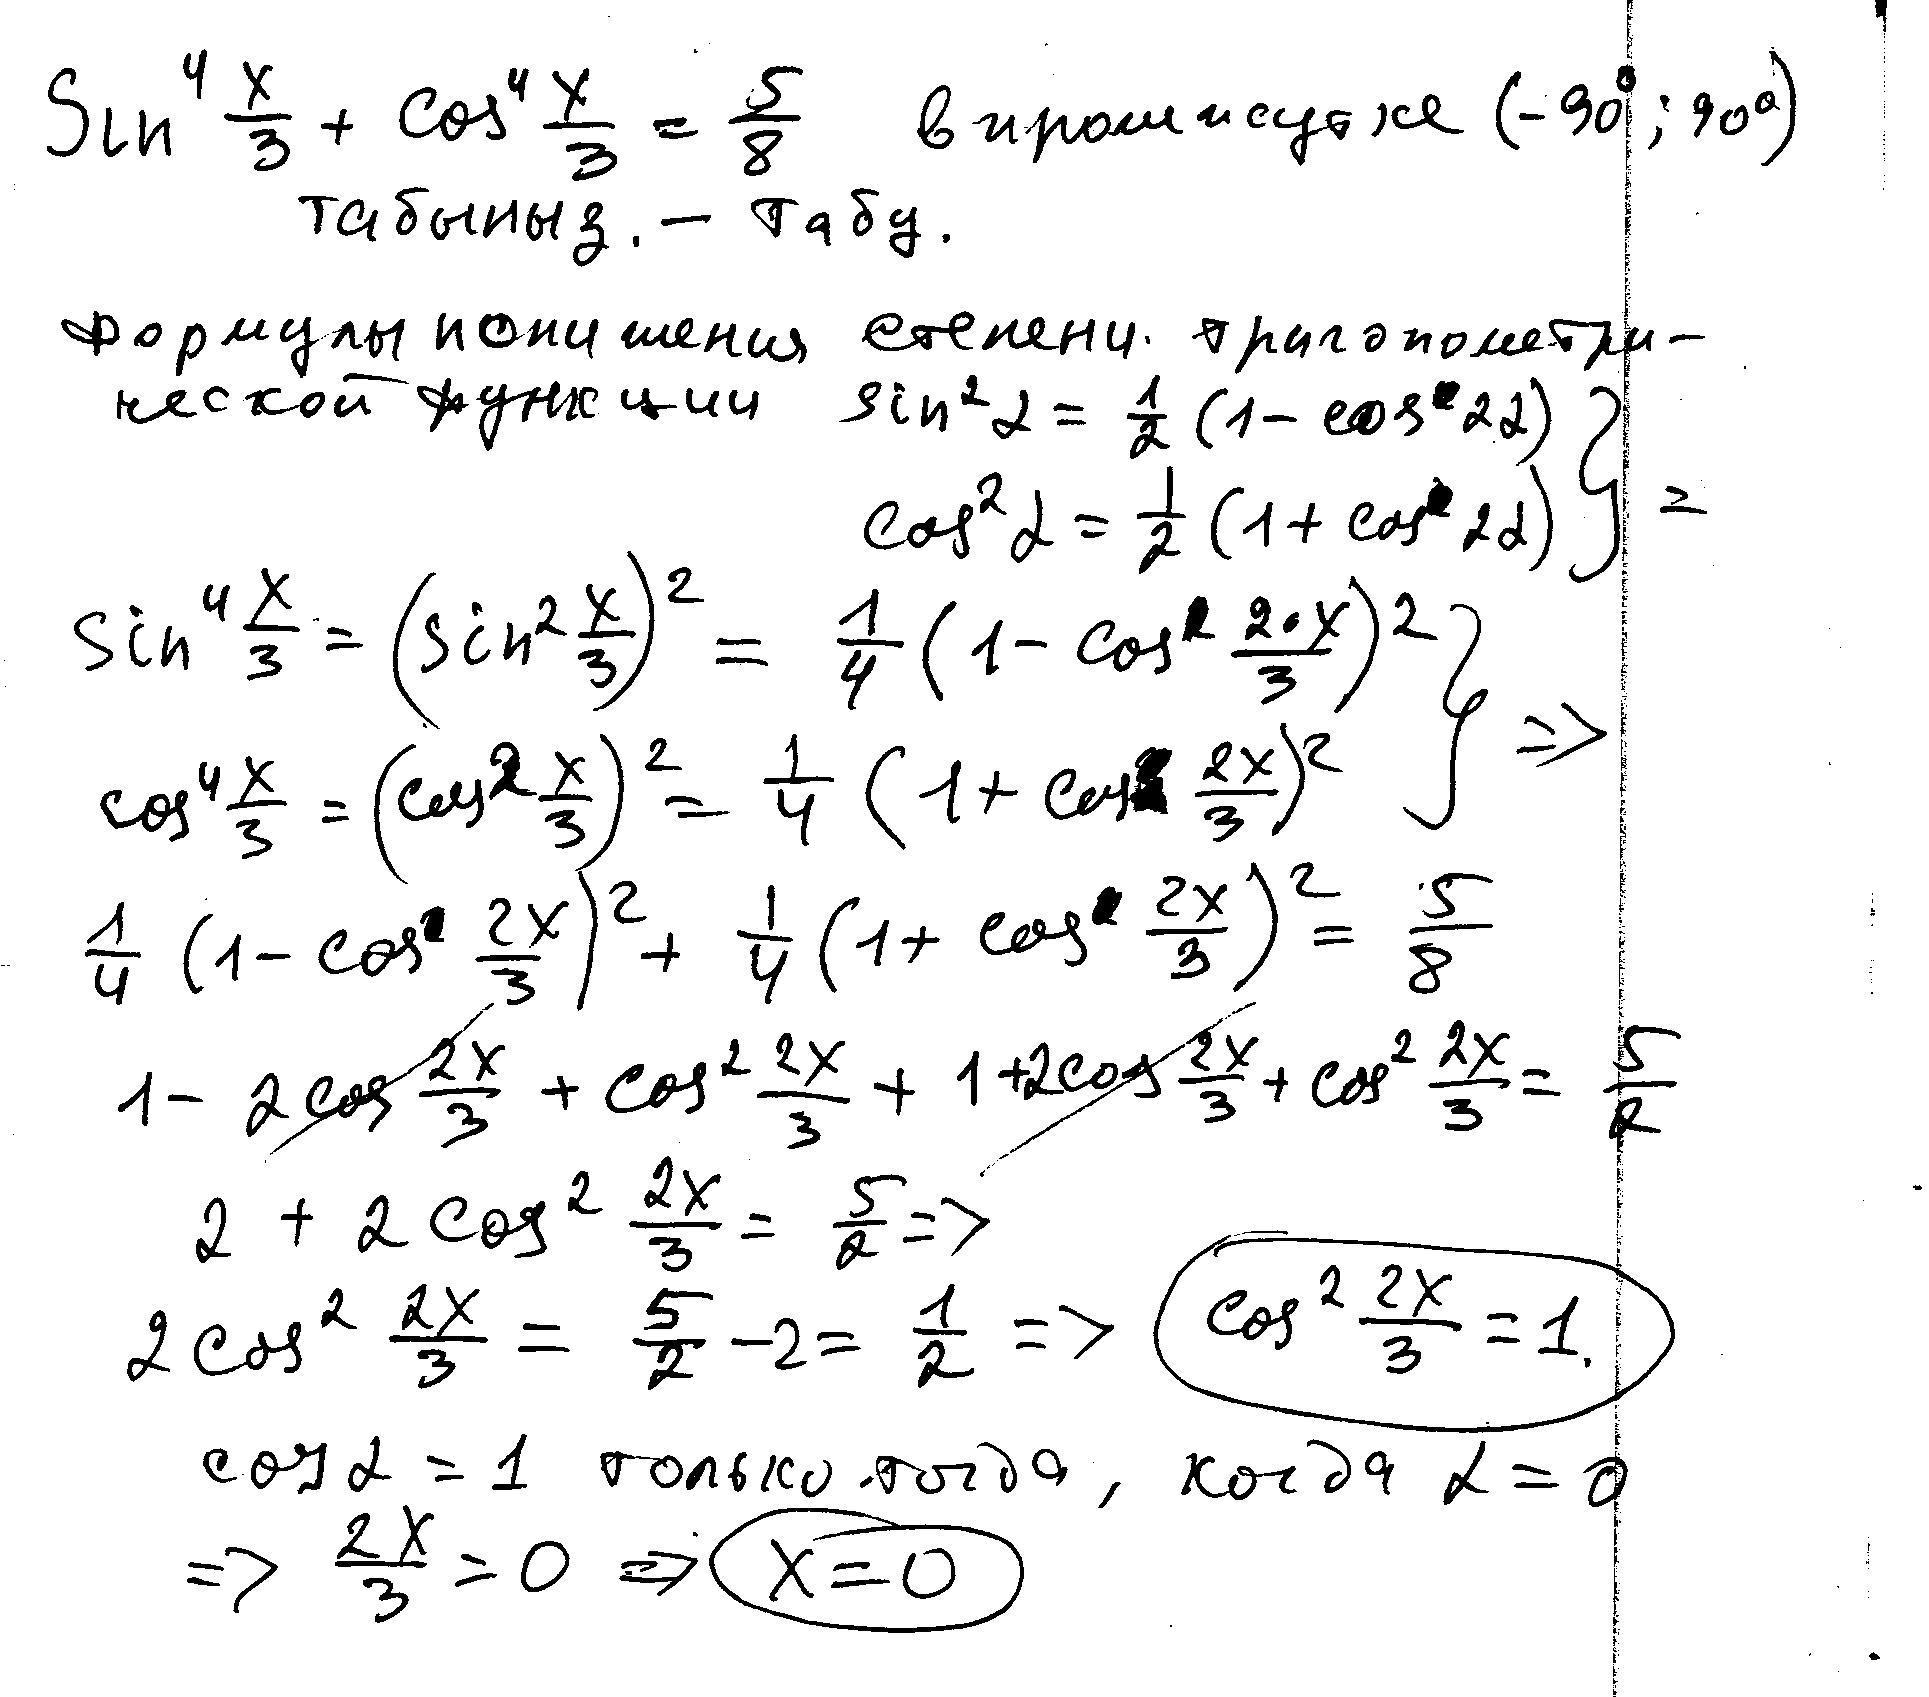 Sin⁴ x/3 + cos⁴ x/3 = 5/8 в промежутке (-90°; 90°)
табыңыз. – табу.
Формулы понишения степени. тригонометри-
ческой функции sin² α = 1/2 (1 - cos 2α) }
cos² α = 1/2 (1 + cos 2α) } =
Sin⁴ x/3 = (sin² x/3)² = 1/4 (1 - cos (2·x)/3)² }
cos⁴ x/3 = (cos² x/3)² = 1/4 (1 + cos 2x/3)² } =>
1/4 (1 - cos 2x/3)² + 1/4 (1 + cos 2x/3)² = 5/8
1 - 2cos 2x/3 + cos² 2x/3 + 1 + 2cos 2x/3 + cos² 2x/3 = 5/2
2 + 2 cos² 2x/3 = 5/2 =>
2 cos² 2x/3 = 5/2 - 2 = 1/2 => cos² 2x/3 = 1.
cos α = 1 только тогда, когда α = 0
=> 2x/3 = 0 => x = 0